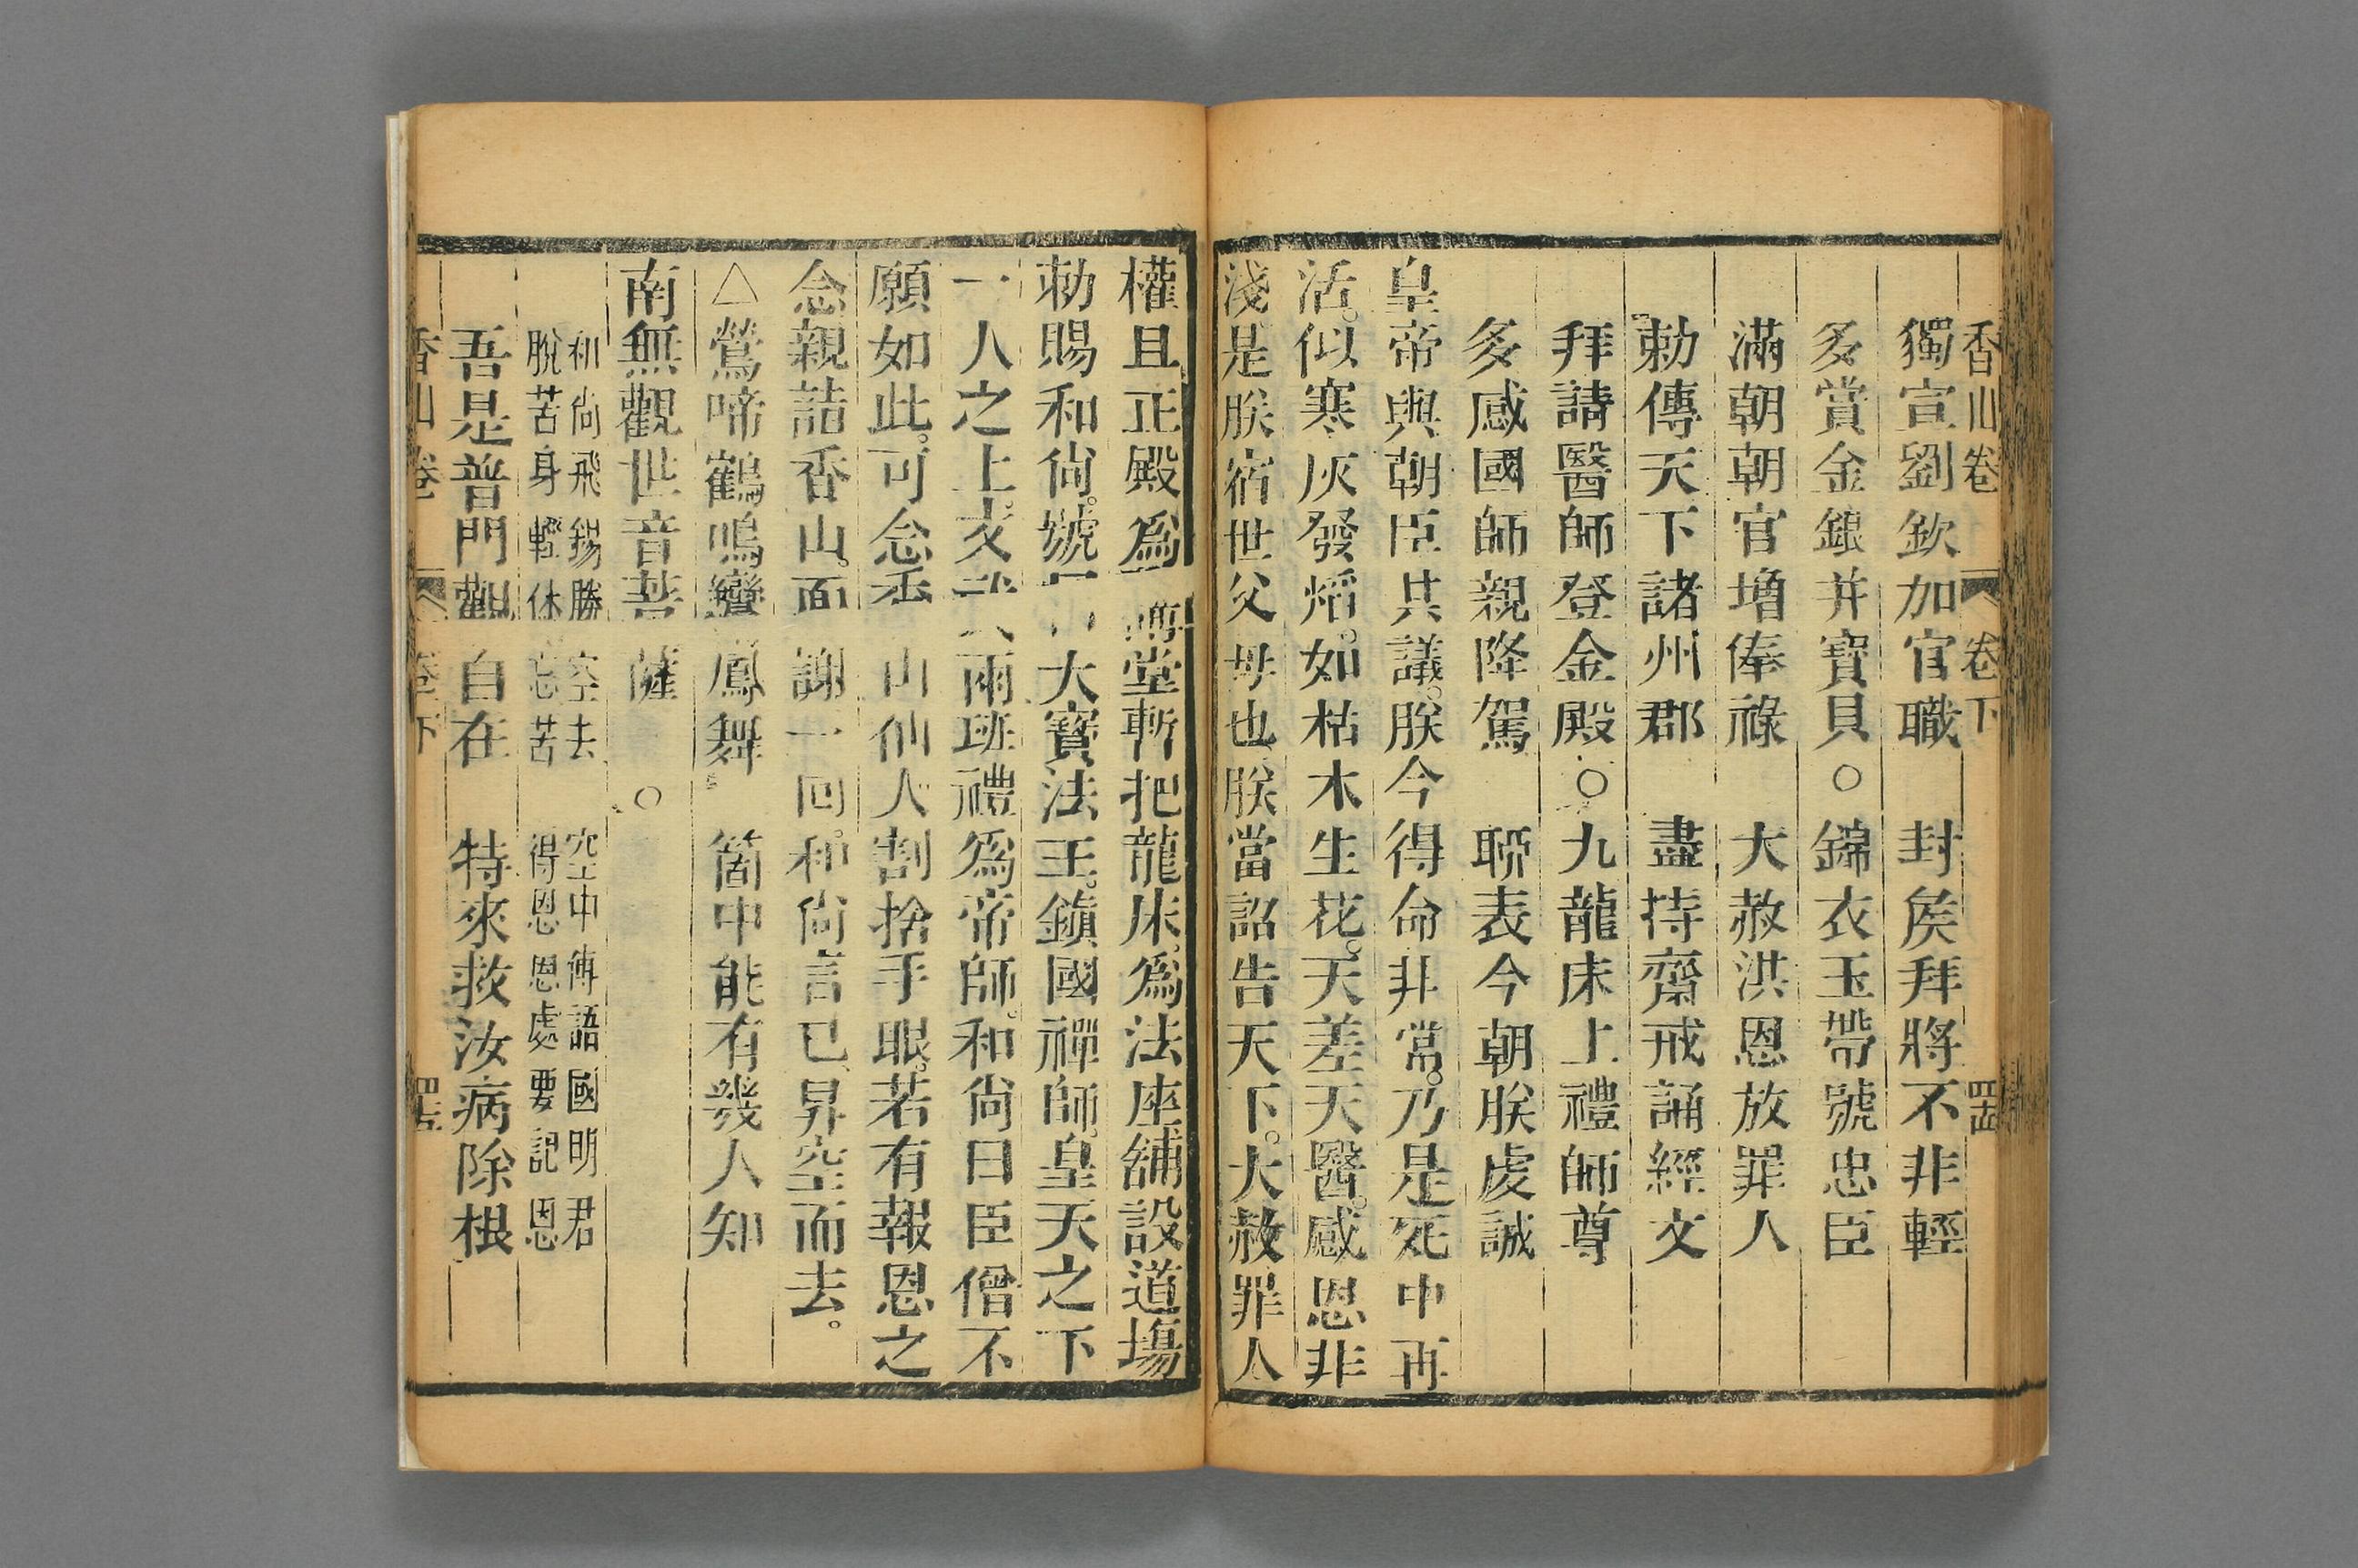 香山卷 卷下 四十四
獨宣劉欽加官職 封矦拜將不非輕
多賞金銀并寶貝○錦衣玉帶號忠臣
滿朝朝官增俸祿 大赦洪恩放罪人
勅傳天下諸州郡 盡持齋戒誦經文
拜請醫師登金殿○九龍床上禮師尊
多感國師親降駕 聊表今朝朕虔誠
皇帝與朝臣共議。朕今得命非常。乃是死中再
活。似寒灰發焰。如枯木生花。天差天醫。感恩非
淺是朕宿世父母也朕當詔告天下。大赦罪人
權且正殿為 堂暫把龍床。為法座舖設道場
勅賜和尚。號 大寶法王。鎮國禪師。皇天之下
一人之上。文 兩班禮為帝師。和尚曰臣僧不
願如此。可念 山仙人割捨手眼。若有報恩之
念親詣香山。面謝一回。和尚言已昇空而去。
△鶯啼鶴鳴鸞鳳舞 箇中能有幾人知
南無觀世音菩薩 ○
和尚飛錫勝空去 空中傳語國明君
脫苦身輕休忘苦 得恩恩處要記恩
吾是普門觀自在 特來救汝病除根
香山卷 卷下